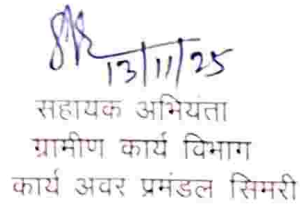 13/11/25
सहायक अभियंता
ग्रामीण कार्य विभाग
कार्य अवर प्रमंडल सिमरी